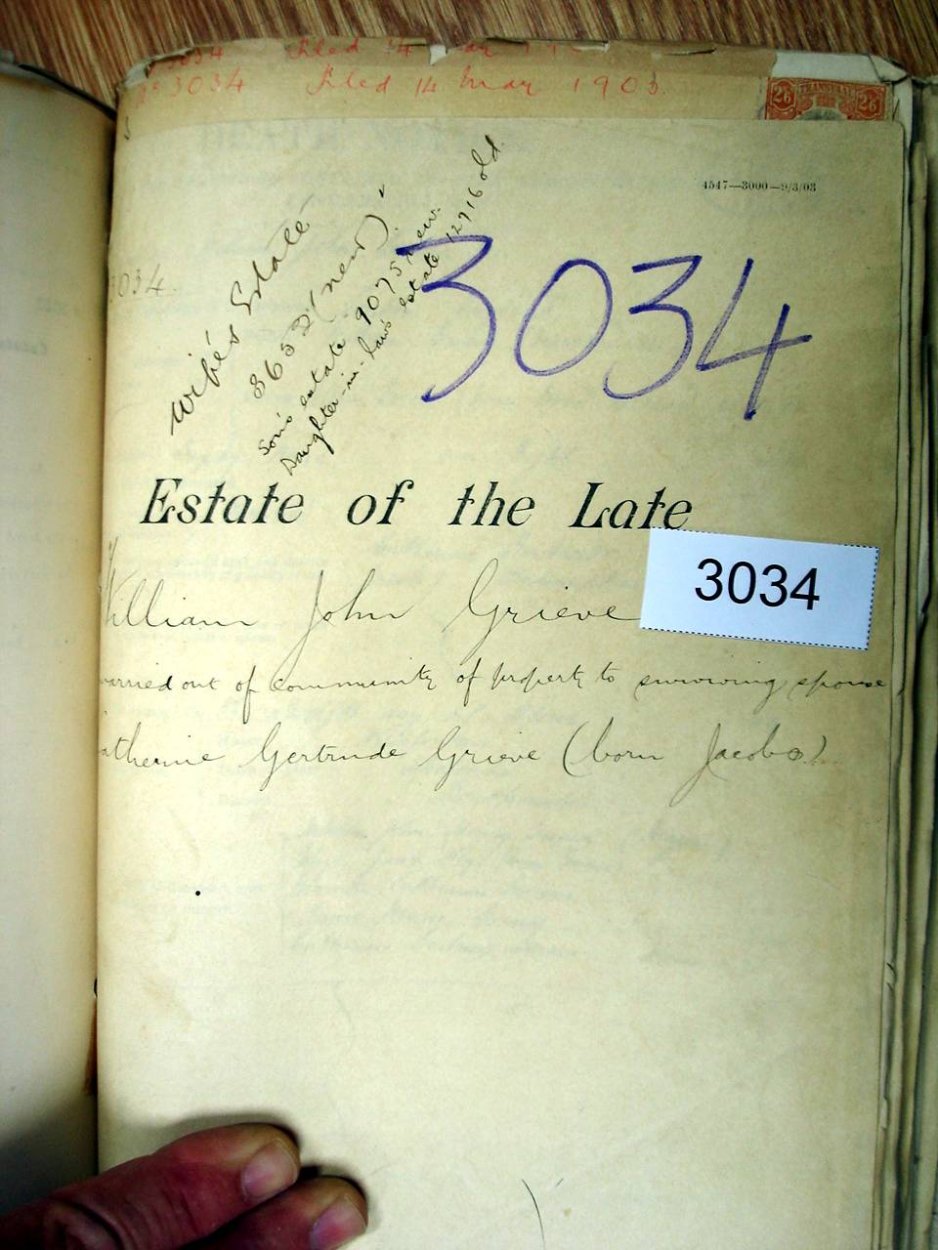 3034 Filed 14
3034 Filed 14 Mar 1903
26 TRANSVAAL 26
4547—3000—9/3/03
3034
Wife's Estate
(new)
Son's estate 9075 new.
Daughter-in-law's estate 12716 old
3034
Estate of the Late
3034
William John Grieve
married out of community of property to surviving spouse
atherine Gertrude Grieve (born Jacobs)